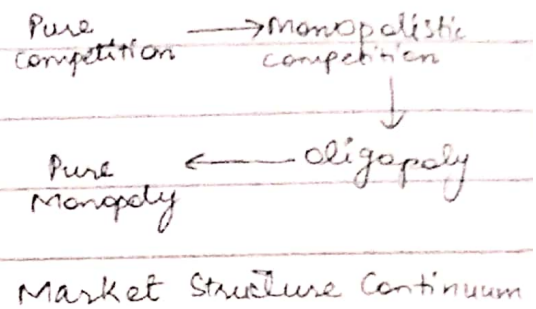 Pure
competition
Monopolistic
competition
oligopoly
Pure
Monopoly
Market Structure Continuum